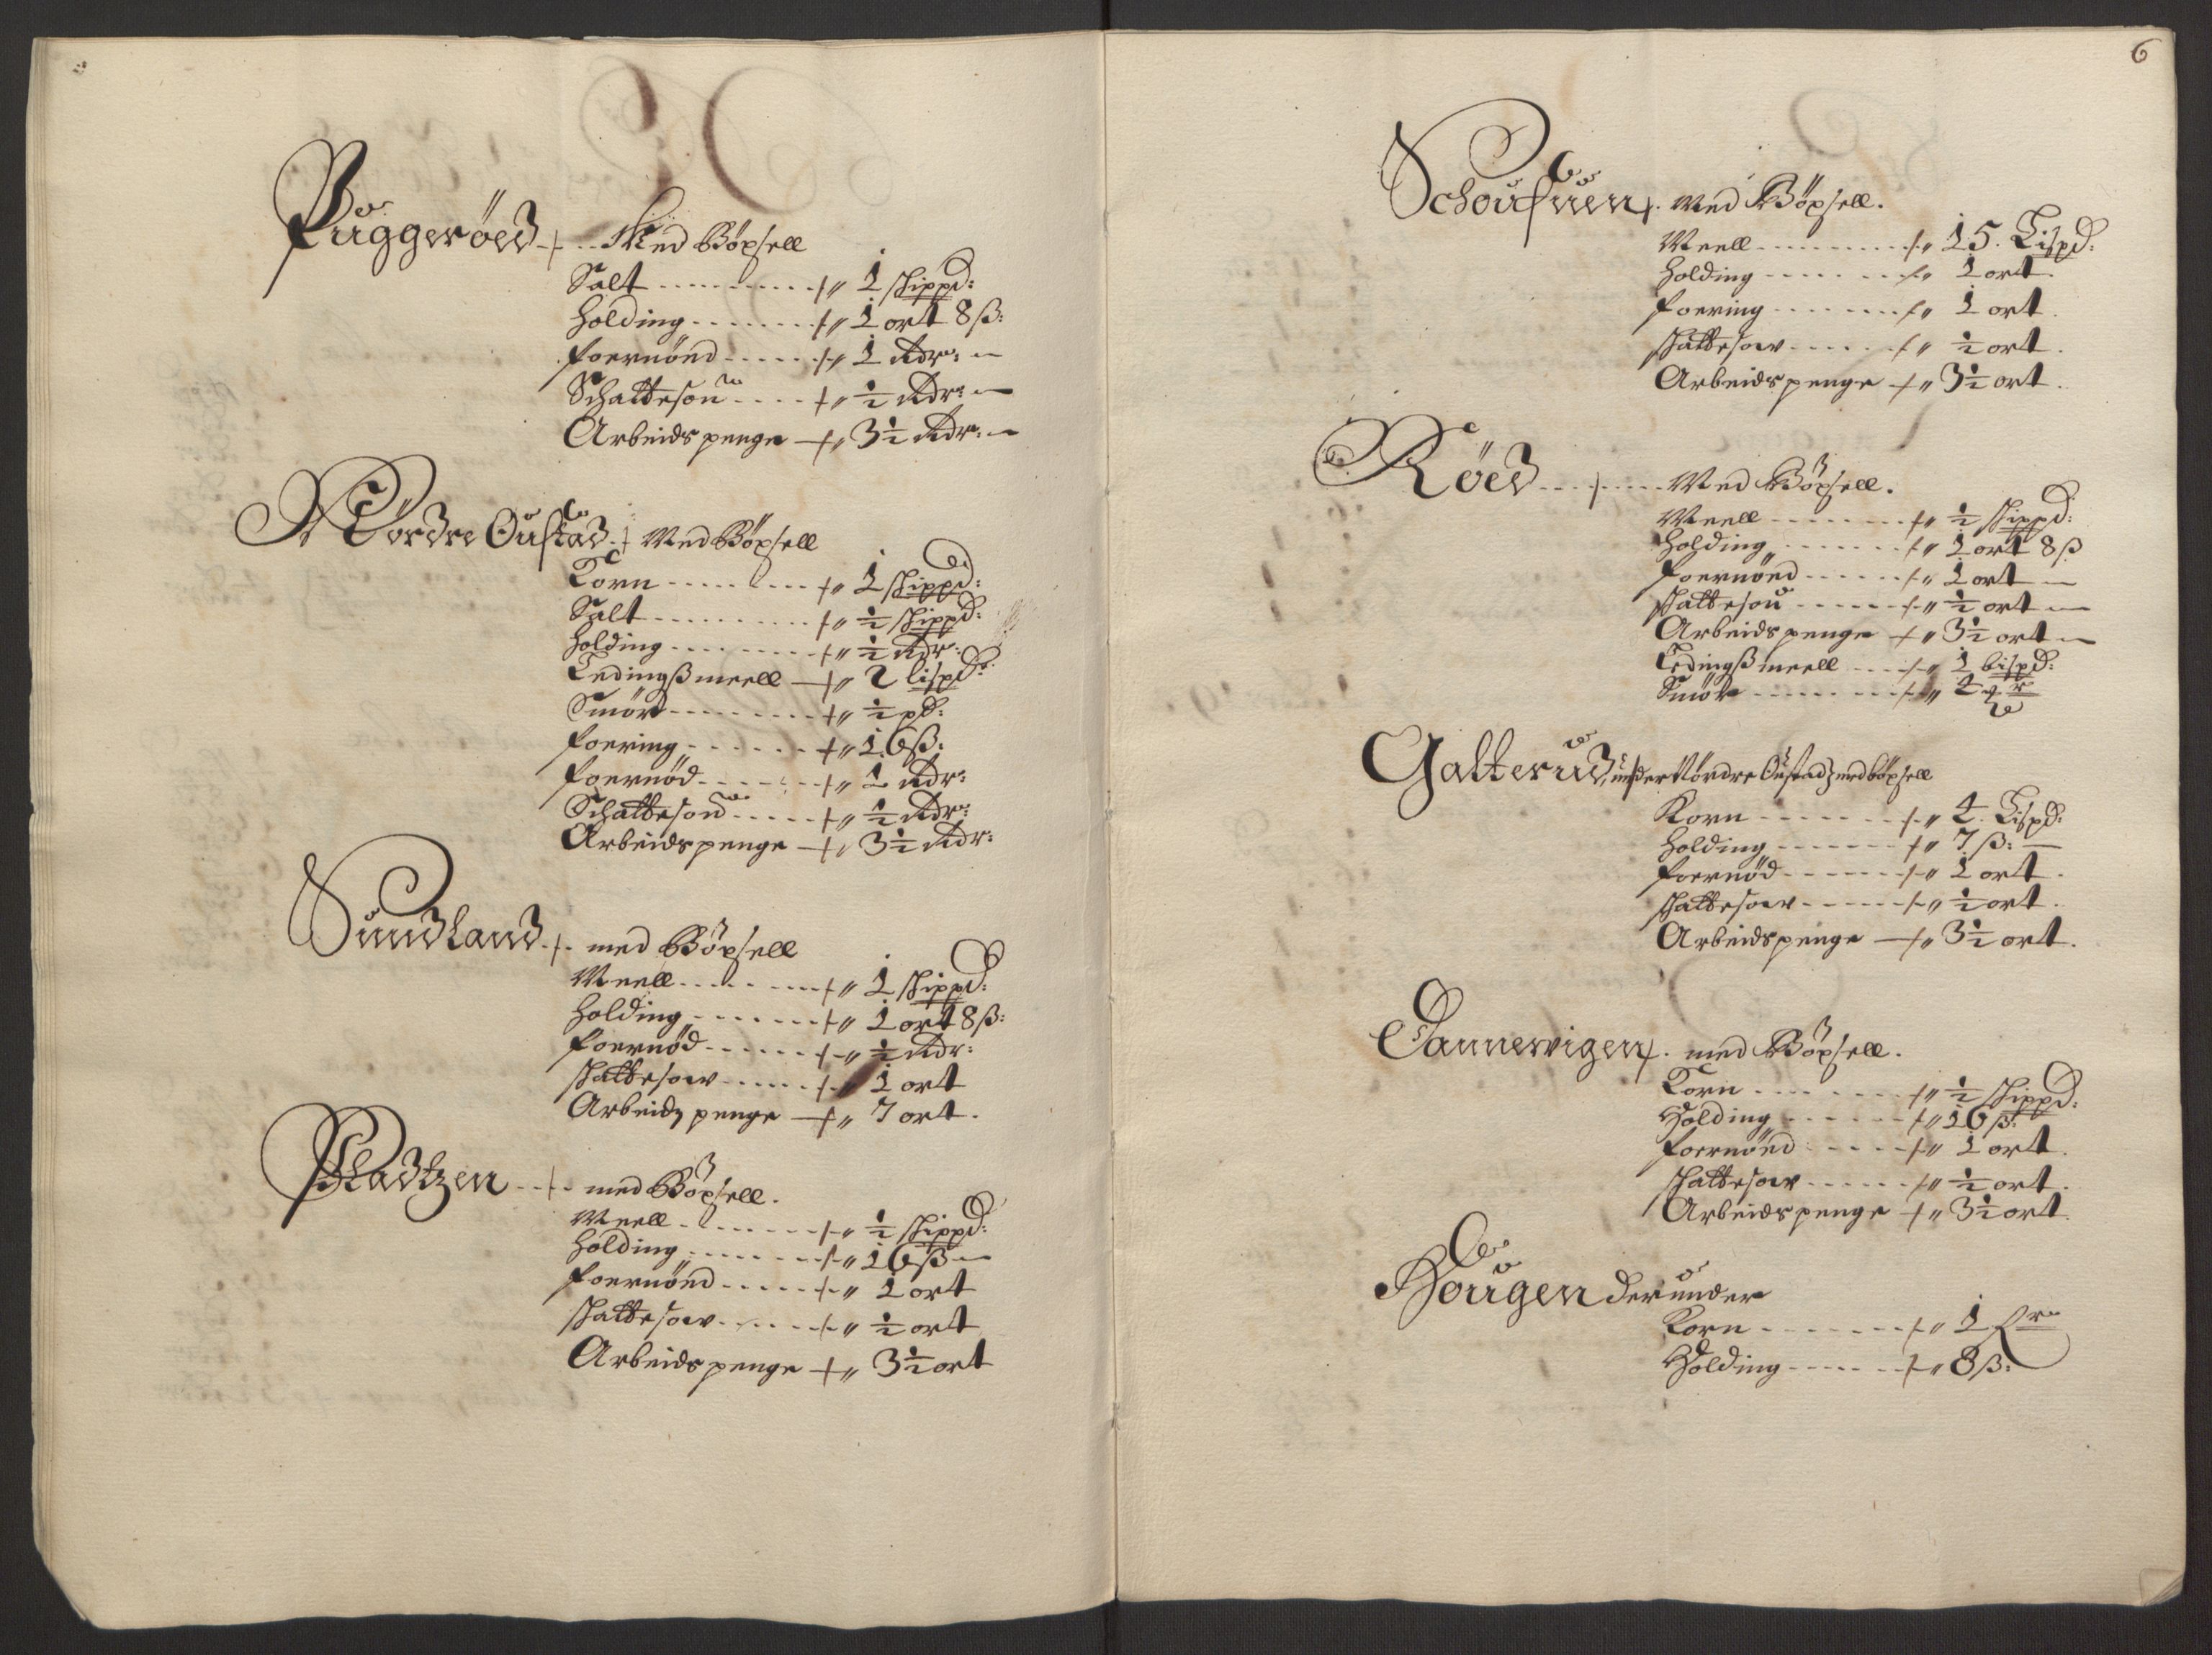 Puggerøed Med Böxsell
Salt 1 skippd:
Holding 1 ort 8 ß:
foernöed 1 Rdr:
Schattesou ½ Rdr:
Arbeids penge 3½ Rdr:
Nordre Oustad Med Böxsell
Korn 1 skippd:
Salt ½ skippd:
Holding ½ Rdr:
Ledingß meell 2 lispd:
Smör ½ pd:
foering 16 ß:
foernöd 1 Rdr:
Schattesou ½ Rdr:
Arbeids penge 3½ Rdr:
Sundland med Böxsell
Meell 1 skippd:
Holding 1 ort 8 ß:
foernöd ½ Rdr:
skattesow 1 ort
Arbeidz penge 7 ort.
Pladtzen med Böxsell.
Meell ½ skippd:
Holding 16 ß
foernöed 1 ort
skattesow ½ ort
Arbeids penge 3½ ort
6
Schoufuen. Med Böxsell.
Meell 15. Lispd:
Holding 1 ort.
foering 1 ort.
skattesow ½ ort.
Arbeids penge 3½ ort.
Röed Med Böxsell.
Meell ½ skippd:
Holding 1 ort 8 ß
foernöed 1 ort
skattesou ½ ort
Arbeids penge 3½ ort
Ledingß meell 1 bispd:
Smör
Galterud, under Nordre Oustad, med böxsell
Korn 4. Lispd:
Holding 7 ß:
foernöd 1 ort.
skattesow ½ ort.
Arbeids penge 3½ ort.
Dannevigen. med Böxsell.
Korn ½ skippd:
Holding 16 ß:
foernöed 1 ort.
skattesow ½ ort.
Arbeids penge 3½ ort.
Hougen der under
Korn 1
Holding 8 ß: